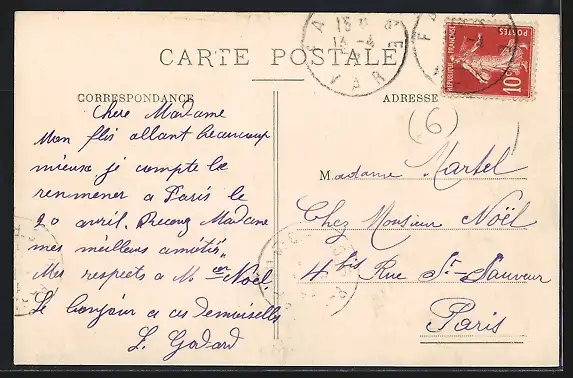 CARTE POSTALE
CORRESPONDANCE
Chere Madame
Mon fils allant beaucoup
mieux je compte le
renmener a Paris le
20 avril. Recevez Madame
mes meilleurs amitiés,
Mes respects a M et Noël.
Le bonjour a ces demoiselles
L. Godard
ADRESSE
6
Madame Martel
Chez Monsieur Noël
4 bis Rue St-Sauveur
Paris
REPUBLIQUE FRANÇAISE
POSTES
10c
VAR